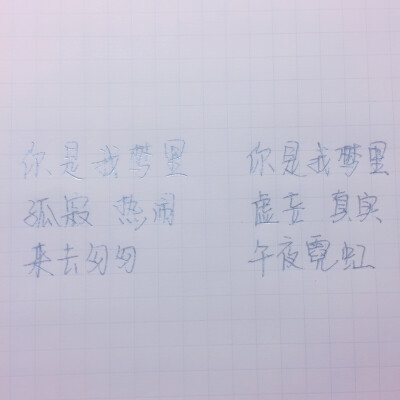 你是我梦里
孤寂 热闹
来去匆匆
你是我梦里
虚妄 真实
午夜霓虹